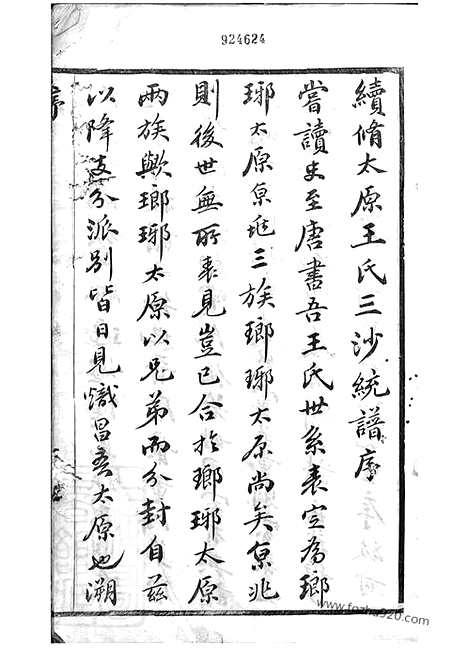 924624
續脩太原王氏三沙統譜序
嘗讀史至唐書吾王氏世系表定為瑯
琊太原京兆三族瑯琊太原尚矣京兆
則後世無所表見豈已合於瑯琊太原
兩族歟瑯琊太原以兄弟而分封自茲
以降支分派別皆日見熾昌吾太原也溯
序
www.fozhu920.com